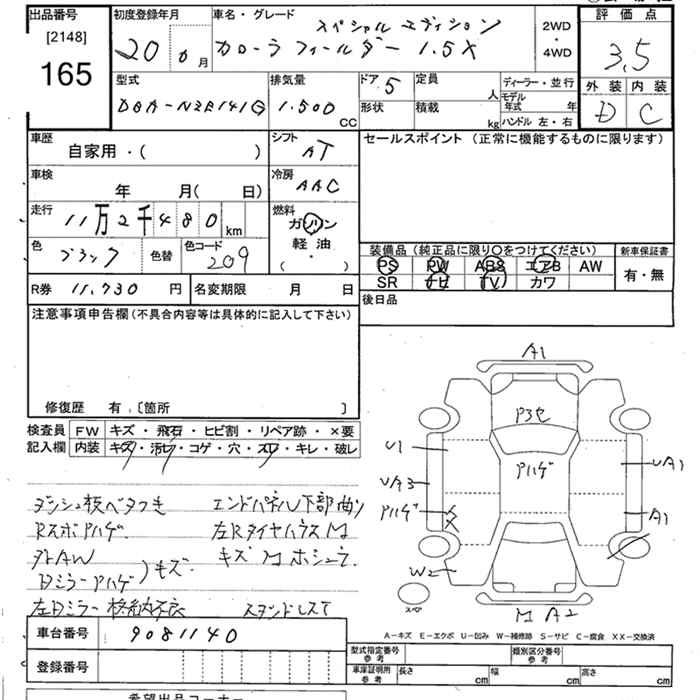 出品番号 初度登録年月 車名・グレード 評価点
[2148] 165
20 6 月
スペシャル エディション
カローラ フィールダー 1.5X
2WD・4WD
3.5
外装 内装
D C
型式 排気量 ドア 5 定員 人 ディーラー・並行
DBA-NZE141G 1.500 CC 形状 積載 kg モデル年式 年
ハンドル 左・右
車歴 シフト セールスポイント (正常に機能するものに限ります)
自家用・( ) AT
車検 冷房
年 月( 日) AAC
走行 燃料
11万2千480 km ガソリン
軽油
・
( )
色 ブラック 色替 色コード 209
装備品 (純正品に限り○をつけてください) 新車保証書
PS PW ABS エアB AW 有・無
SR ナビ TV カワ
R券 11.730 円 名変期限 月 日 後日品
注意事項申告欄 (不具合内容等は具体的に記入して下さい)
修復歴 有 .〔箇所 〕
検査員 FW キズ・飛石・ヒビ割・リペア跡・×要
記入欄 内装 キズ・汚レ・コゲ・穴・スレ・キレ・破レ
ダッシュ板ベタつき エンドパネル下部曲り
Rスポアハゲ 左RタイヤハウスM
外AW キズMホシュウ
Dミラーアハゲ )モキズ
左Dミラー格納不良 スタンドレスT
A1
P3セ
U1 アハゲ UA1
UA3
アハゲ A1
W2
スペ M A2
A-キズ E-エクボ U-凹み W-補修跡 S-サビ C-腐食 XX-交換済
車台番号 9081140
登録番号
型式指定番号 参考 類別区分番号 参考
車庫証明用 参考 長さ cm 幅 cm 高さ cm
希望出品コーナー